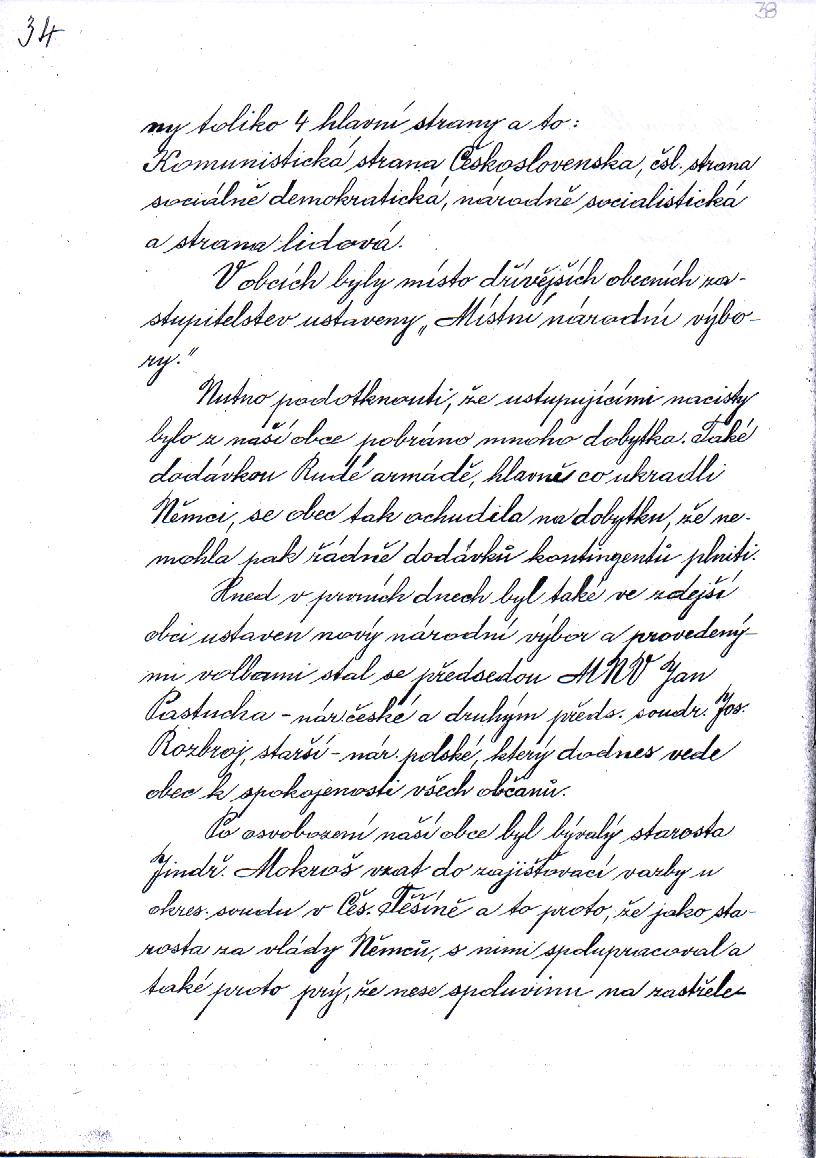 34
38
ny toliko 4 hlavní strany a to:
Komunistická strana Československa, čsl. strana
sociálně demokratická, národně socialistická
a strana lidová.
V obcích byly místo dřívějších obecních za-
stupitelstev ustaveny „Místní národní výbo-
ry."
Nutno podotknouti, že ustupujícími nacisty
bylo z naší obce pobráno mnoho dobytka. Také
dodávkou Rudé armádě, hlavně co ukradli
Němci, se obec tak ochudila na dobytku, že ne-
mohla pak řádně dodávků kontingentů plniti.
Hned v prvních dnech byl také ve zdejší
obci ustaven nový národní výbor a provedený-
mi volbami stal se předsedou MNV Jan
Pastucha - nár. české a druhým předs. soudr. Jos.
Rozbroj, starší - nár. polské, který dodnes vede
obec k spokojenosti všech občanů.
Po osvobození naší obce byl bývalý starosta
Jindř. Mokroš vzat do zajišťovací vazby u
okres. soudu v Čes. Těšíně a to proto, že jako sta-
rosta za vlády Němců, s nimi spolupracoval a
také proto prý, že nese spoluvinu na zastřele-